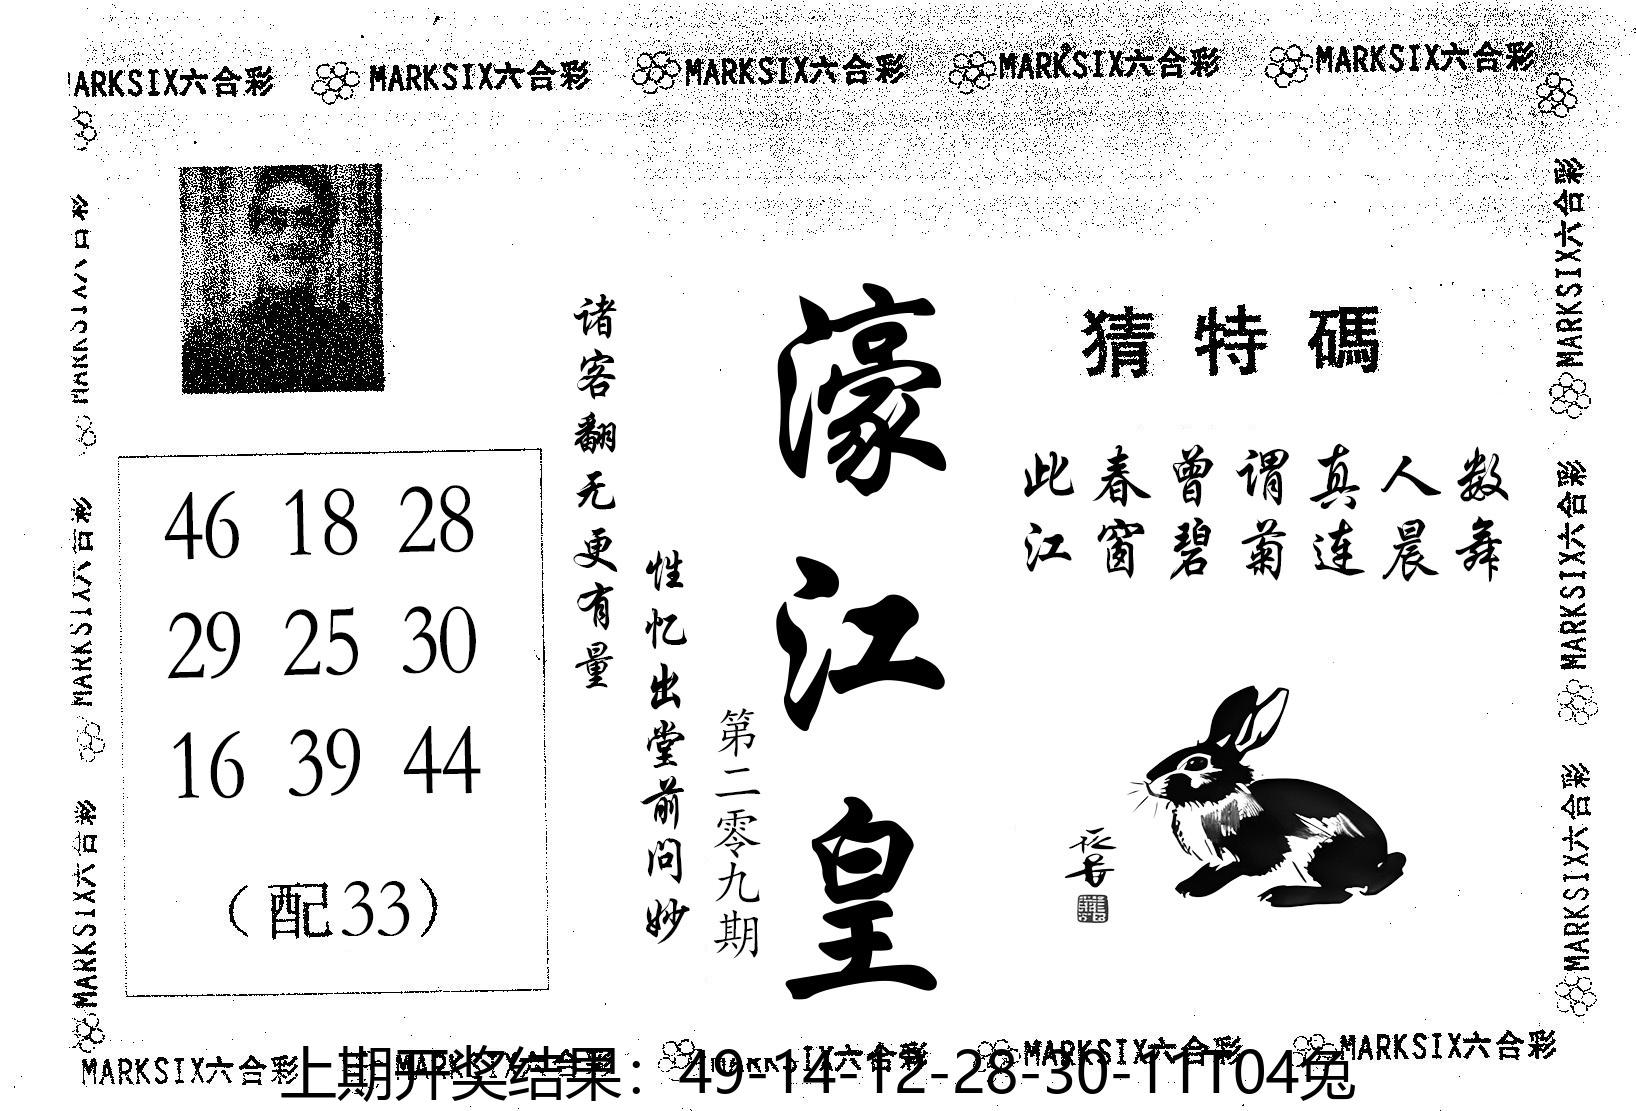 MARKSIX六合彩 MARKSIX六合彩 MARKSIX六合彩 MARKSIX六合彩 MARKSIX六合彩
猜特碼
此春曾谓真人数
江窗碧菊连晨舞
濠江皇
第二零九期
性忆出堂前问妙
诸客翻无更有量
46 18 28
29 25 30
16 39 44
（配33）
MARKSIX六合彩
MARKSIX六合彩
MARKSIX六合彩
MARKSIX六合彩
MARKSIX六合彩
MARKSIX六合彩
MARKSIX六合彩 MARKSIX六合彩 MARKSIX六合彩 MARKSIX六合彩 MARKSIX六合彩
上期开奖结果：49-14-12-28-30-11T04兔